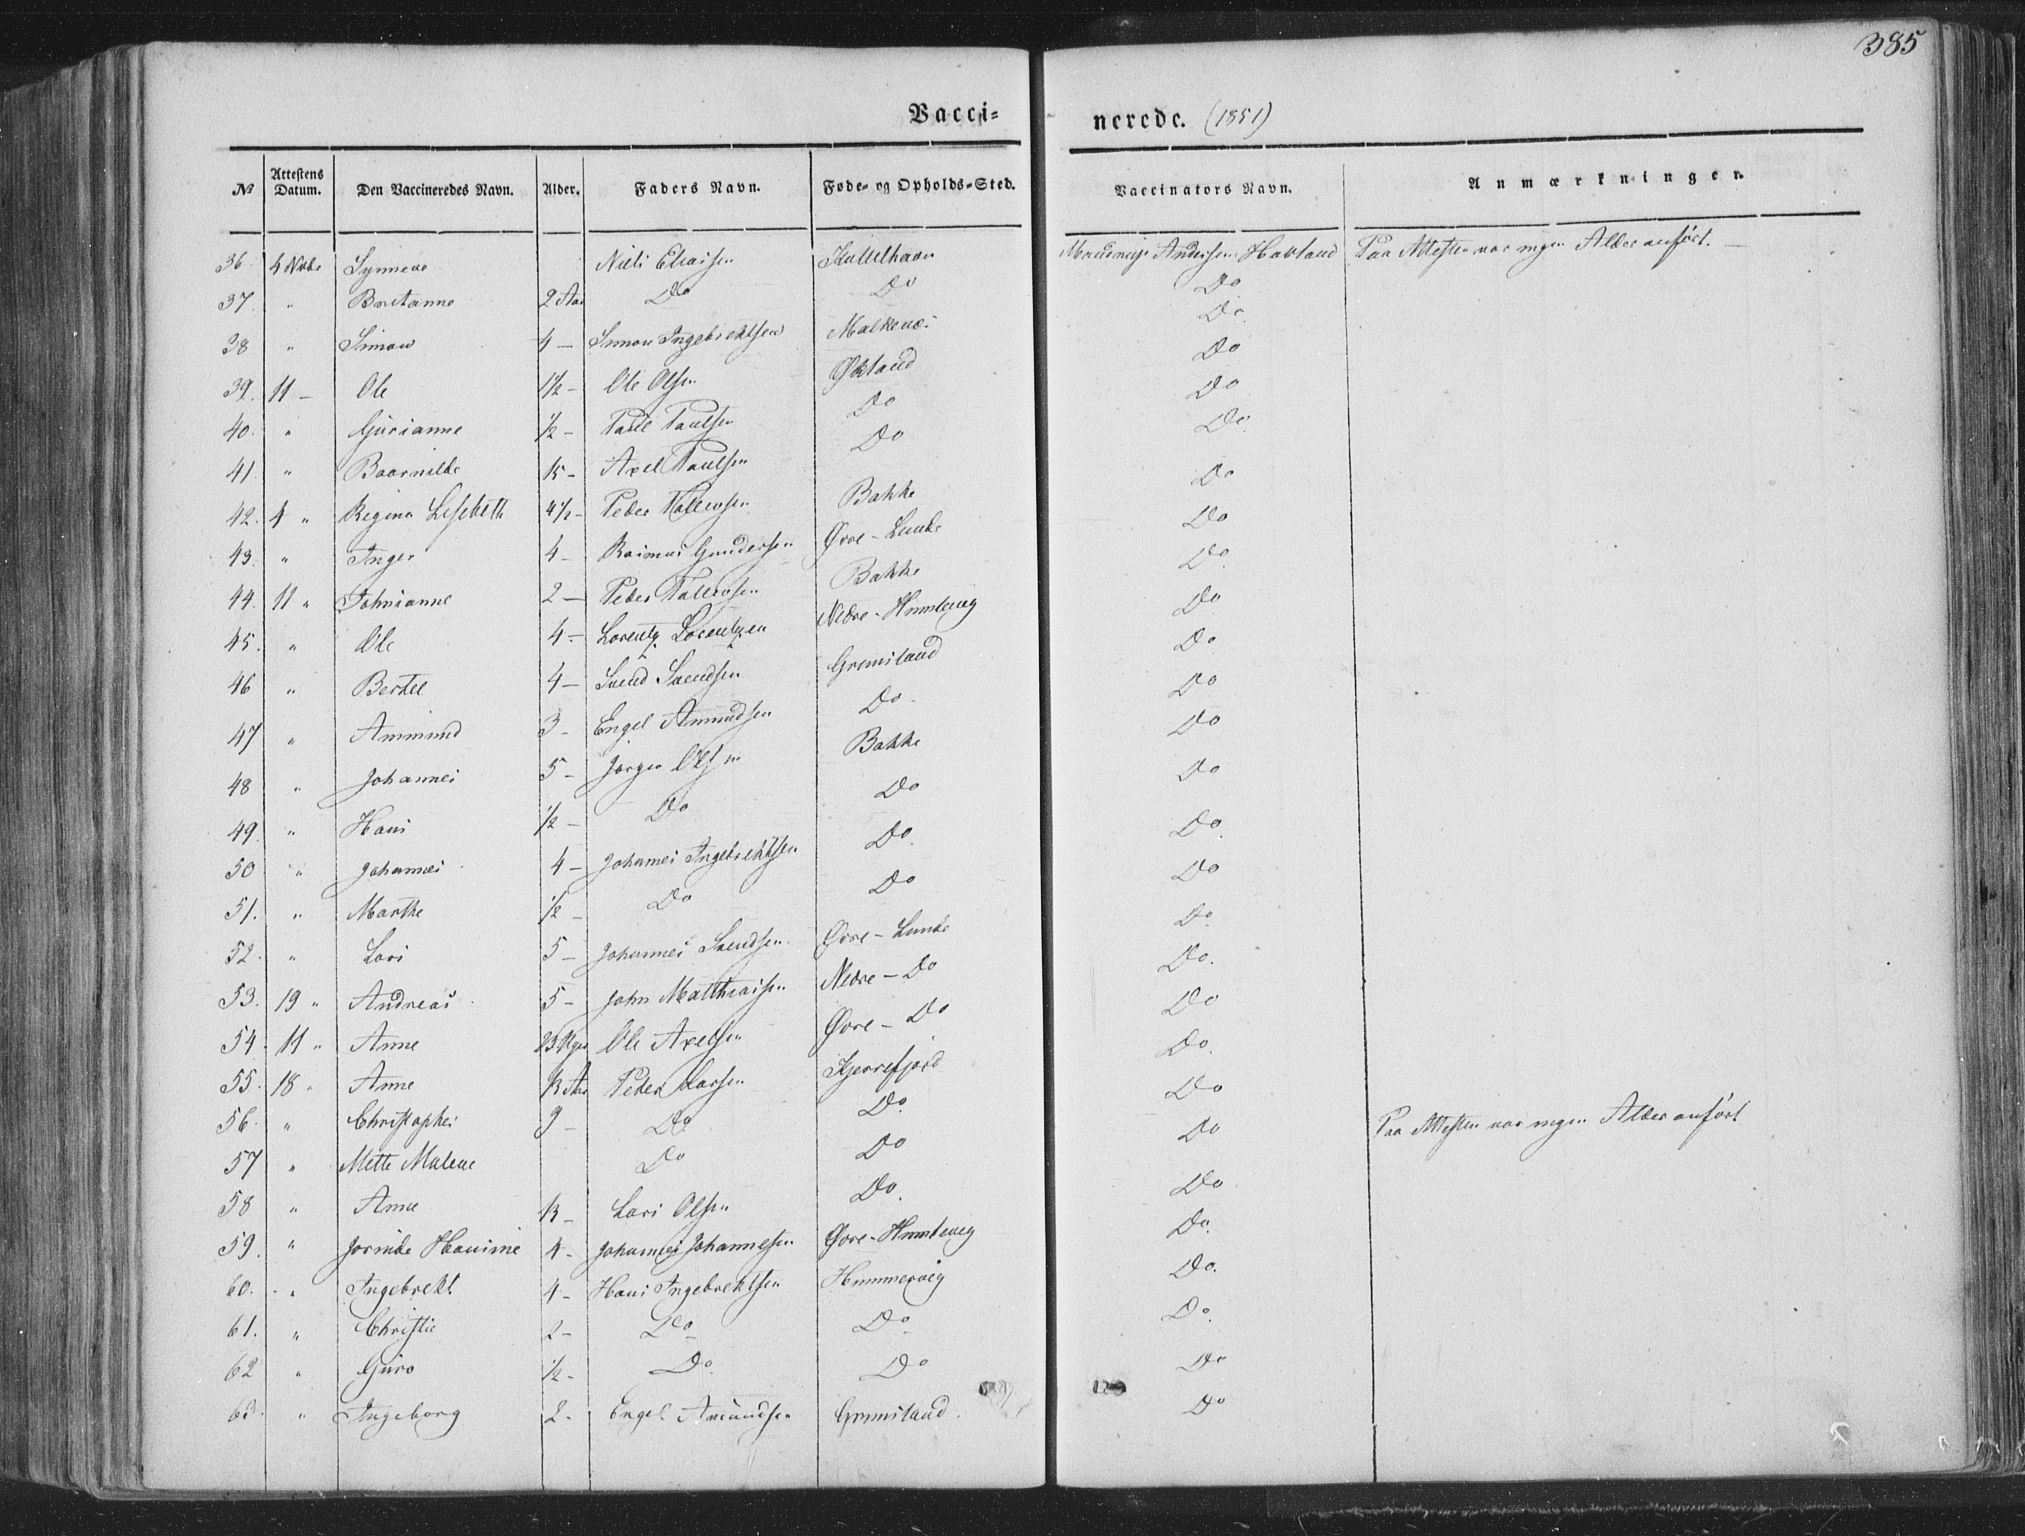 385
Vacci- nerede. (1851)
№ Attestens Datum. Den Vaccineredes Navn. Alder. Faders Navn. Føde- og Opholds-Sted. Vaccinators Navn. Anmærkninger.
36. 4 Novbr Synneve Niels Eliasen Andersen Havland Paa Attesten var ingen Alder anført. —
37. " Beritanne 2 Aar Do Do Do
38 " Simon 4 — Simon Ingebrektsen Do
39. 11 — Ole 1½ — Ole Olsen Økland Do
40. " Gurianne ½ — Paul Paulsen Do Do
41. " Baarnilde 15 — Axel Paulsen Do Do
42. 4 " Regina Lisebeth 4½ — Peder Tollevsen Bakke Do
43. " Inger 4 — Rasmus Gundersen Øvre - Lunde Do
44. 11 " Johnianne 2 — Peder Tollevsen Bakke Do
45. " Ole 4 — Lorentz Lorentzen Nedre - Humlevig Do
46 " Bertel 4 — Svend Svendsen Grønsland Do
47 " Ammund 3 — Engel Amundsen Do Do
48 " Johannes 5 — Jørgen Olsen Bakke Do
49. " Hans ½ — Do Do Do
50 " Johannes 4 — Johannes Ingebrektsen Do Do
51. " Marthe ½ — Do Do Do
52. " Lars 5 — Johannes Svendsen Øvre - Lunde Do
53. 19 " Andreas 5 — John Matthiasen Nedre - Do Do
54. 11 " Anne Ole Axelsen Øvre - Do Do
55. 18 " Anne Peder Larsen Kjerrefjord Do
56. " Christopher 9 — Do Do Do Paa Attesten var ingen Alder anført
57 " Mette Malene Do Do Do
58 " Anne Lars Olsen Do Do
59. " Johannes Johannesen Øvre - Humlevig Do
60. " Ingebrekt 4 — Hans Ingebrektsen Hummervig Do
61. " Christie 2 — Do Do Do
62 " Guro ½ — Do Do Do
63. " Ingeborg 2 — Engel Amundsen Grønsland. Do